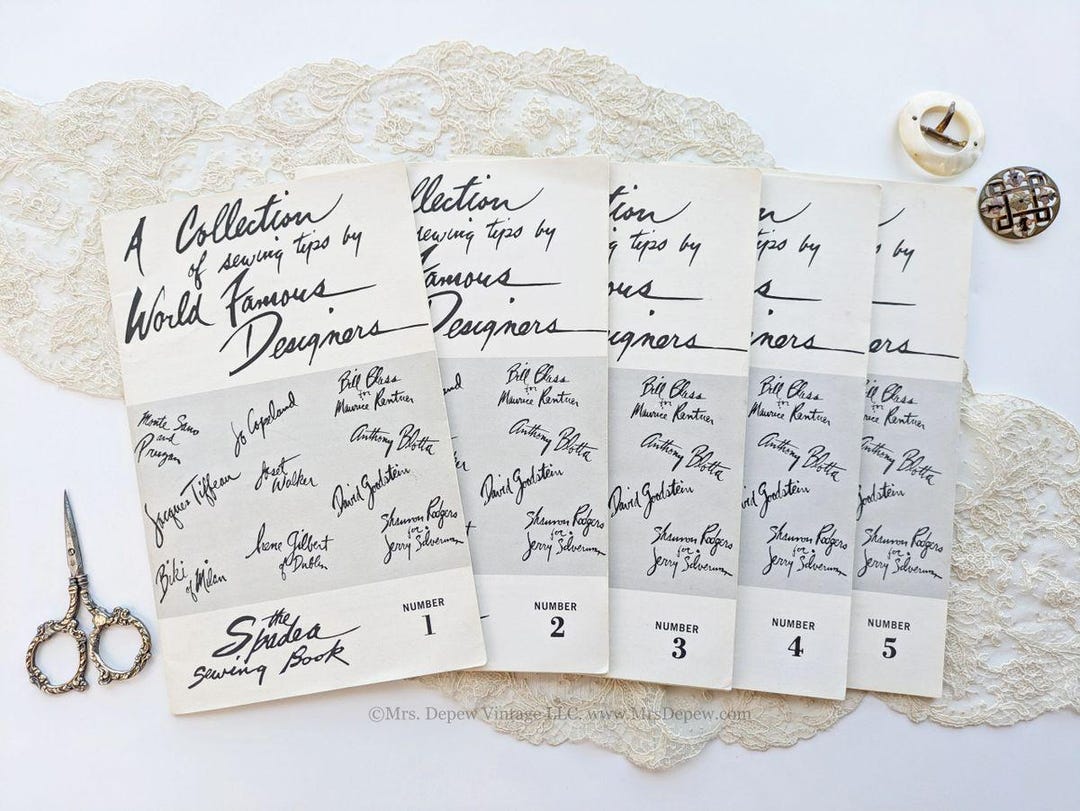 A Collection
of sewing tips by
World Famous
Designers
Monte Sano
and
Pruzan
Jo Copeland
Bill Blass
for
Maurice Rentner
Jacques Tiffeau
Joset
Walker
Anthony Blotta
David Goodstein
Biki
of Milan
Irene Gilbert
of Dublin
Shannon Rodgers
for
Jerry Silverman
the
Spadea
Sewing Book
NUMBER
1
llection
sewing tips by
Famous
Designers
Bill Blass
for
Maurice Rentner
Anthony Blotta
David Goodstein
Shannon Rodgers
for
Jerry Silverman
NUMBER
2
tion
g tips by
ous
igners
Bill Blass
for
Maurice Rentner
Anthony Blotta
David Goodstein
Shannon Rodgers
for
Jerry Silverman
NUMBER
3
tips by
s
ners
Bill Blass
for
Maurice Rentner
Anthony Blotta
Goodstein
Shannon Rodgers
for
Jerry Silverman
NUMBER
4
by
ers
Bill Blass
for
Rentner
Anthony Blotta
odstein
Shannon Rodgers
for
Jerry Silverman
NUMBER
5
©Mrs. Depew Vintage LLC. www.MrsDepew.com